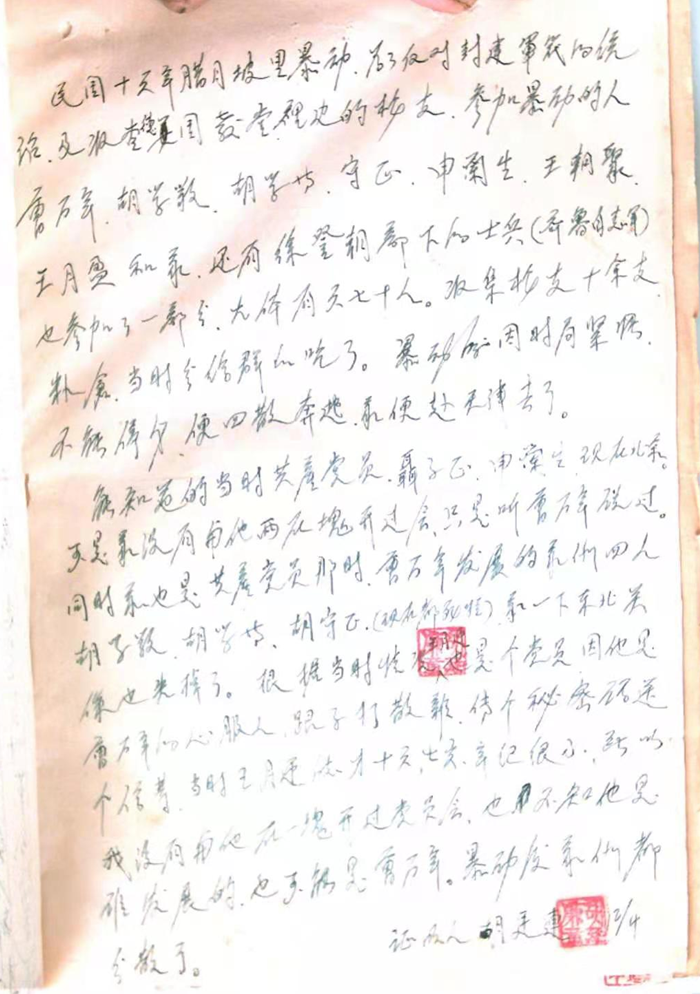 民国十六年腊月坡里暴动，为了反对封建军阀的统
治，及收查德国教堂裡边的枪支，参加暴动的人
曹万年，胡学敬，胡学苗，守正，申兰生，王朝聚，
王月盈和我，还有徐登朝部下的士兵(齐鲁自志军)
也参加了一部分，大体有六七十人。收集枪支十余支，
粮仓，当时分给群众吃了。暴动后因时局紧张，
不能停留，便四散奔逃，我便赴天津去了。
能知道的当时共产党员，聂子正，申兰生现在北京。
可是我没有与他两在块开过会，只是听曹万年说过。
同时我也是共产党员那时，曹万年发展的我们四人
胡学敬，胡学苗，胡守正，(现在都死啦)我一下东北关
係也失掉了。根据当时情况王月盈也是个党员，因他是
曹万年的心服人，跟了打散杂，传个秘密码送
个信等，当时王月盈他才十六，七岁，年纪很小，所以
我没有与他在一塊开过党员会，也不知他是
谁发展的，也可能是曹万年。暴动后我们都
分散了。
证明人 胡 廷 12/4